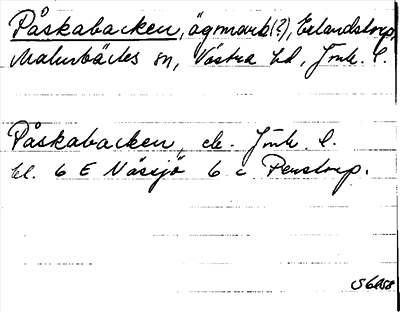 Påskabacken, ägomark(?), Erlandstorp,
Malmbäcks sn, Västra hd, Jönk. l.
Påskabacken, ek. Jönk. l.
bl. 6 E Nässjö 6 c Penstorp.